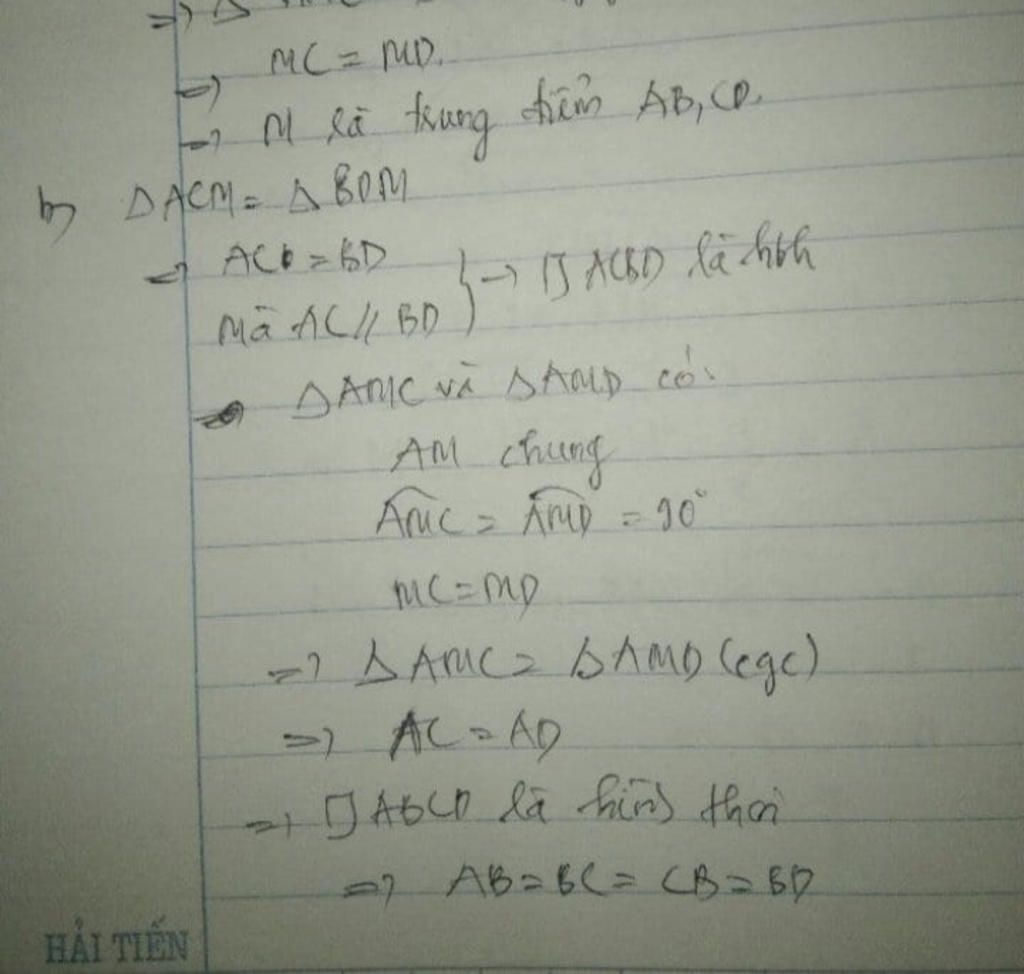 => Δ
=> MC = MD.
=> M là trung điểm AB, CD.
b) ΔACM = ΔBDM
=> AC = BD
mà AC // BD } → ▱ ACBD là hbh
ΔAMC và ΔAMD có:
AM chung
AMC = AMD = 90°
MC = MD
=> ΔAMC = ΔAMD (cgc)
=> AC = AD
=> ▱ ABCD là hình thoi
=> AB = BC = CB = BD
HẢI TIẾN